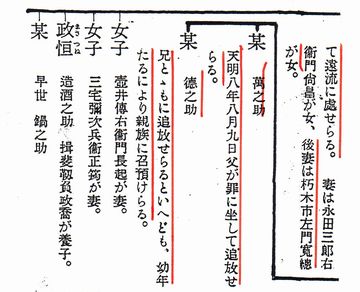 て遠流に處せらる。　妻は永田三郎右
衞門尙昌が女、後妻は朽木市左門寬總
が女。
某　萬之助
天明八年八月九日父が罪に坐して追放せ
らる。
某　德之助
兄とゝもに追放せらるといへども、幼年
たるにより親族に召預けらる。
女子
壺井傳右衞門長起が妻。
女子
三宅彌次兵衞正筠が妻。
政恒　まさつね
造酒之助　揖斐靱負政喬が養子。
某
早世　鍋之助